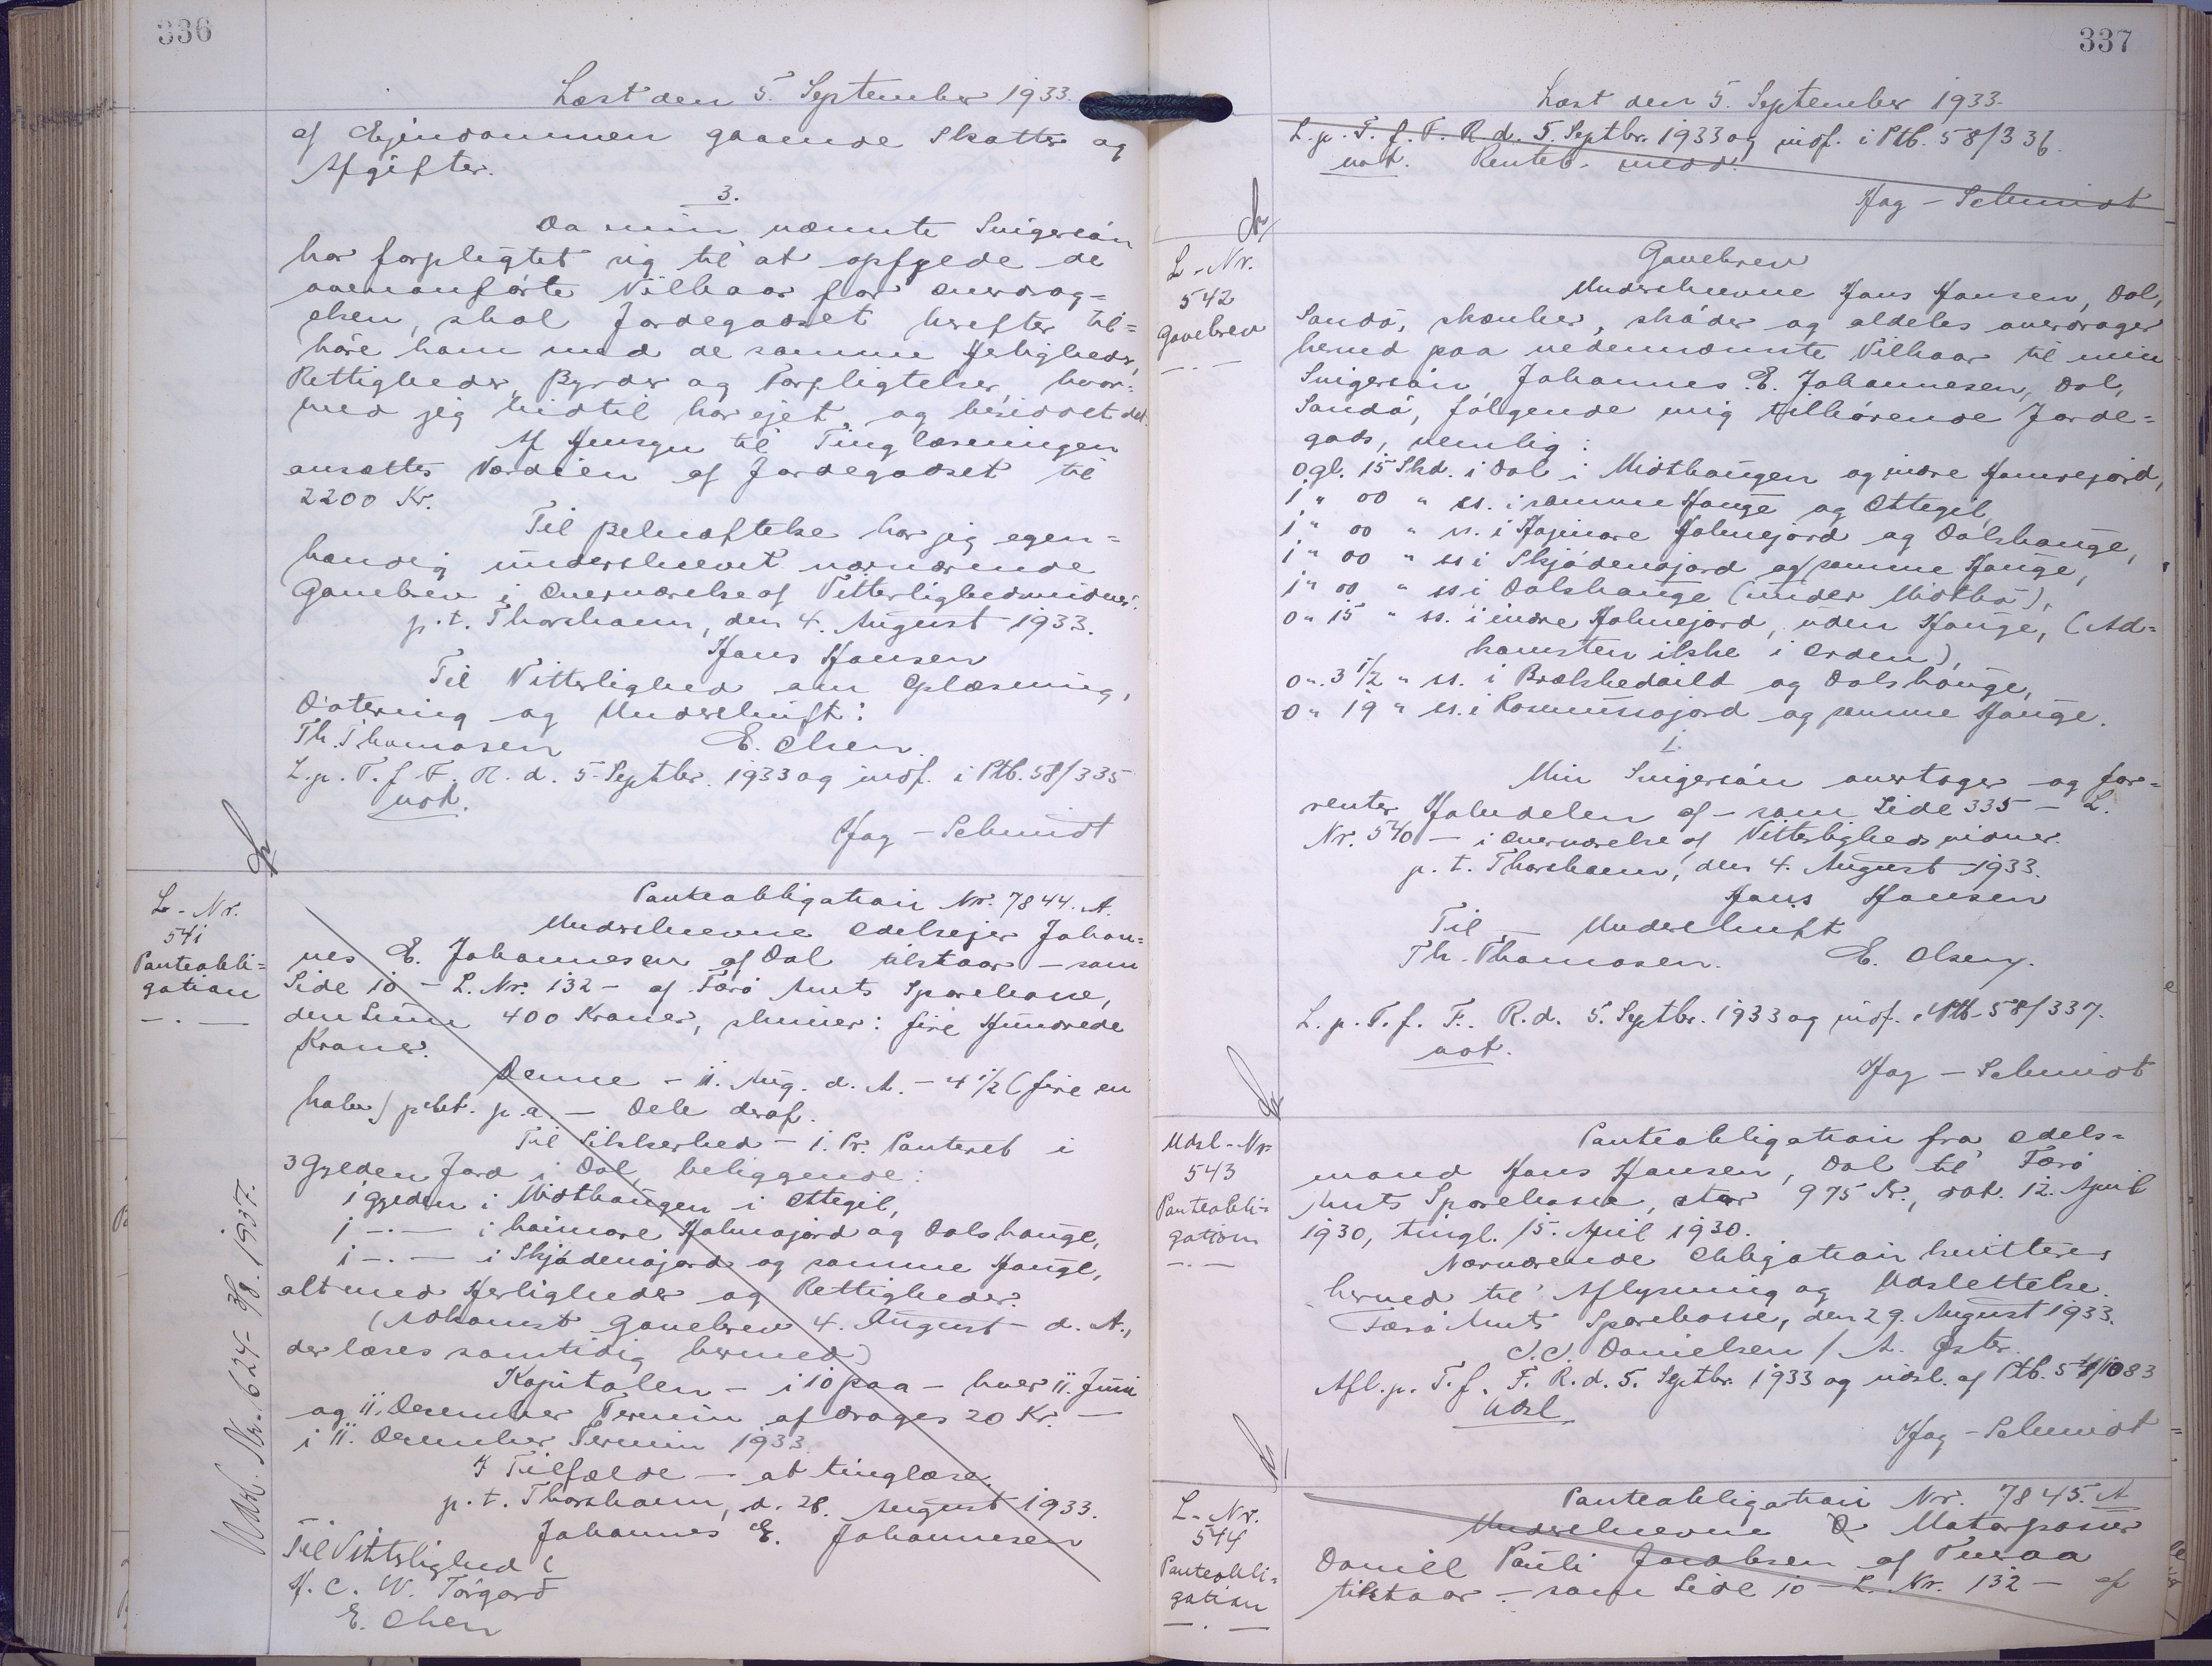 336
Læst den 5. September 1933.
af Ejendommen gaaende Skatter og
Afgifter.
3.
Da min nævnte Svigersön
har forpligtet sig til at opfylde de
ovenanförte Vilkaar for Overdrag=
elsen, skal Jordegodset herefter til=
höre ham med de samme Herligheder,
Rettigheder, Byrder og Forpligtelser, hvor=
med jeg hidtil har ejet og besiddet det.
Af Hensyn til Tinglæsningen
ansættes Værdien af Jordegodset til
2200 Kr.
Til Bekræftelse har jeg egen=
hændig underskrevet nærværende
Gavebrev i Overværelse af Vitterlighedsvidner.
p.t. Thorshavn, den 4. August 1933.
Hans Hansen
Til Vitterlighed om Oplæsning,
Datering og Underskrift:
Th. Thomasen E. Olsen.
L.p.T.f.F.R.d. 5. Septbr. 1933 og indf. i Ptb. 58/335
not.
Hag-Schmidt
L-Nr.
541
Panteobli=
gation
Panteobligation Nr. 7844. A.
Underskrevne Odelsejer Johan=
nes E. Johannesen af Dal tilstaar - som
Side 10 - L. Nr. 132 - af Færö Amts Sparekasse,
den Sum 400 Kroner, skriver: fire Hundrede
Kroner.
Denne - 11. Aug. d. A. - 4 1/2 (fire en
halv) pCt. p.a. - Dele deraf.
Til Sikkerhed - 1. Pr. Panteret i
3 Gylden Jord i Dal, beliggende:
1 Gylden i Midthaugen i Ottegil,
1 -.- i haimare Holmajörd og Dalshauge,
1 -.- i Skjödenajørd og samme Hauge,
alt med Herligheder og Rettigheder.
(Adkomst Gavebrev 4. August d. A.,
der læses samtidig hermed)
Kapitalen - i 10 paa - hver 11. Juni
og 11. December Termin afdrages 20 Kr. -
i 11. December Termin 1933.
I Tilfælde - at tinglæse.
p.t. Thorshavn, d. 28. August 1933.
Johannes E. Johannesen
Til Vitterlighed:
H. C. W. Törgard
E. Olsen
Udsl. Nr. 624 - 3/8. 1937.
337
Læst den 5. September 1933.
L.p.T.f.F.R.d. 5. Septbr. 1933 og indf. i Ptb. 58/336.
not. Renteb. medd.
Hag-Schmidt
L-Nr.
542
Gavebrev
Gavebrev
Underskrevne Hans Hansen, Dal,
Sandö, skænker, sköder og aldeles overdrager
herved paa nedennævnte Vilkaar til min
Svigersön Johannes E. Johannesen, Dal,
Sandö, fölgende mig tilhörende Jorde=
gods, nemlig:
0 gl. 15 Skd. i Dal i Midthaugen og indre Hamrejørd,
1 " 00 " ss. i samme Hauge og Ottegil,
1 " 00 " ss. i Hajmare Holmejørd og Dalshauge,
1 " 00 " ss i Skjödenajørd og samme Hauge,
1 " 00 " ss i Dalshauge (under Midthö),
0 " 15 " ss. i indre Holmejørd, uden Hauge, (Ad=
komsten ikke i Orden),
0 " 3 1/2 " ss. i Brekkedaild og Dalshauge,
0 " 19 " ss. i Rasmussajørd og samme Hauge.
1.
Min Svigersön overtager og for=
renter Halvdelen af - som Side 335 - L.
Nr. 540 - i Overværelse af Vitterlighedsvidner.
p. t. Thorshavn, den 4. August 1933.
Hans Hansen
Til - Underskrift
Th. Thomasen. E. Olsen.
L.p.T.f.F.R.d. 5. Septbr. 1933 og indf. i Ptb. 58/337.
not.
Hag-Schmidt
Udsl-Nr.
543
Panteobli=
gation
Panteobligation fra Odels=
mand Hans Hansen, Dal til Færö
Amts Sparekasse, stor 975 Kr., dat. 12. April
1930, tingl. 15. April 1930.
Nærværende Obligation kvitteres
herved til Aflysning og Udslettelse.
Færö Amts Sparekasse, den 29. August 1933.
J.C. Danielsen / A. Øster.
Afl.p.T.f.F.R.d. 5. Septbr. 1933 og udsl. af Ptb.
Udsl
Hag-Schmidt
L-Nr.
544
Panteobli=
gation
Panteobligation Nr. 7845. A
Underskrevne Motorpasser
Daniel Pauli Jacobsen af Tveraa
tilstaar - som Side 10 - L. Nr. 132 - af